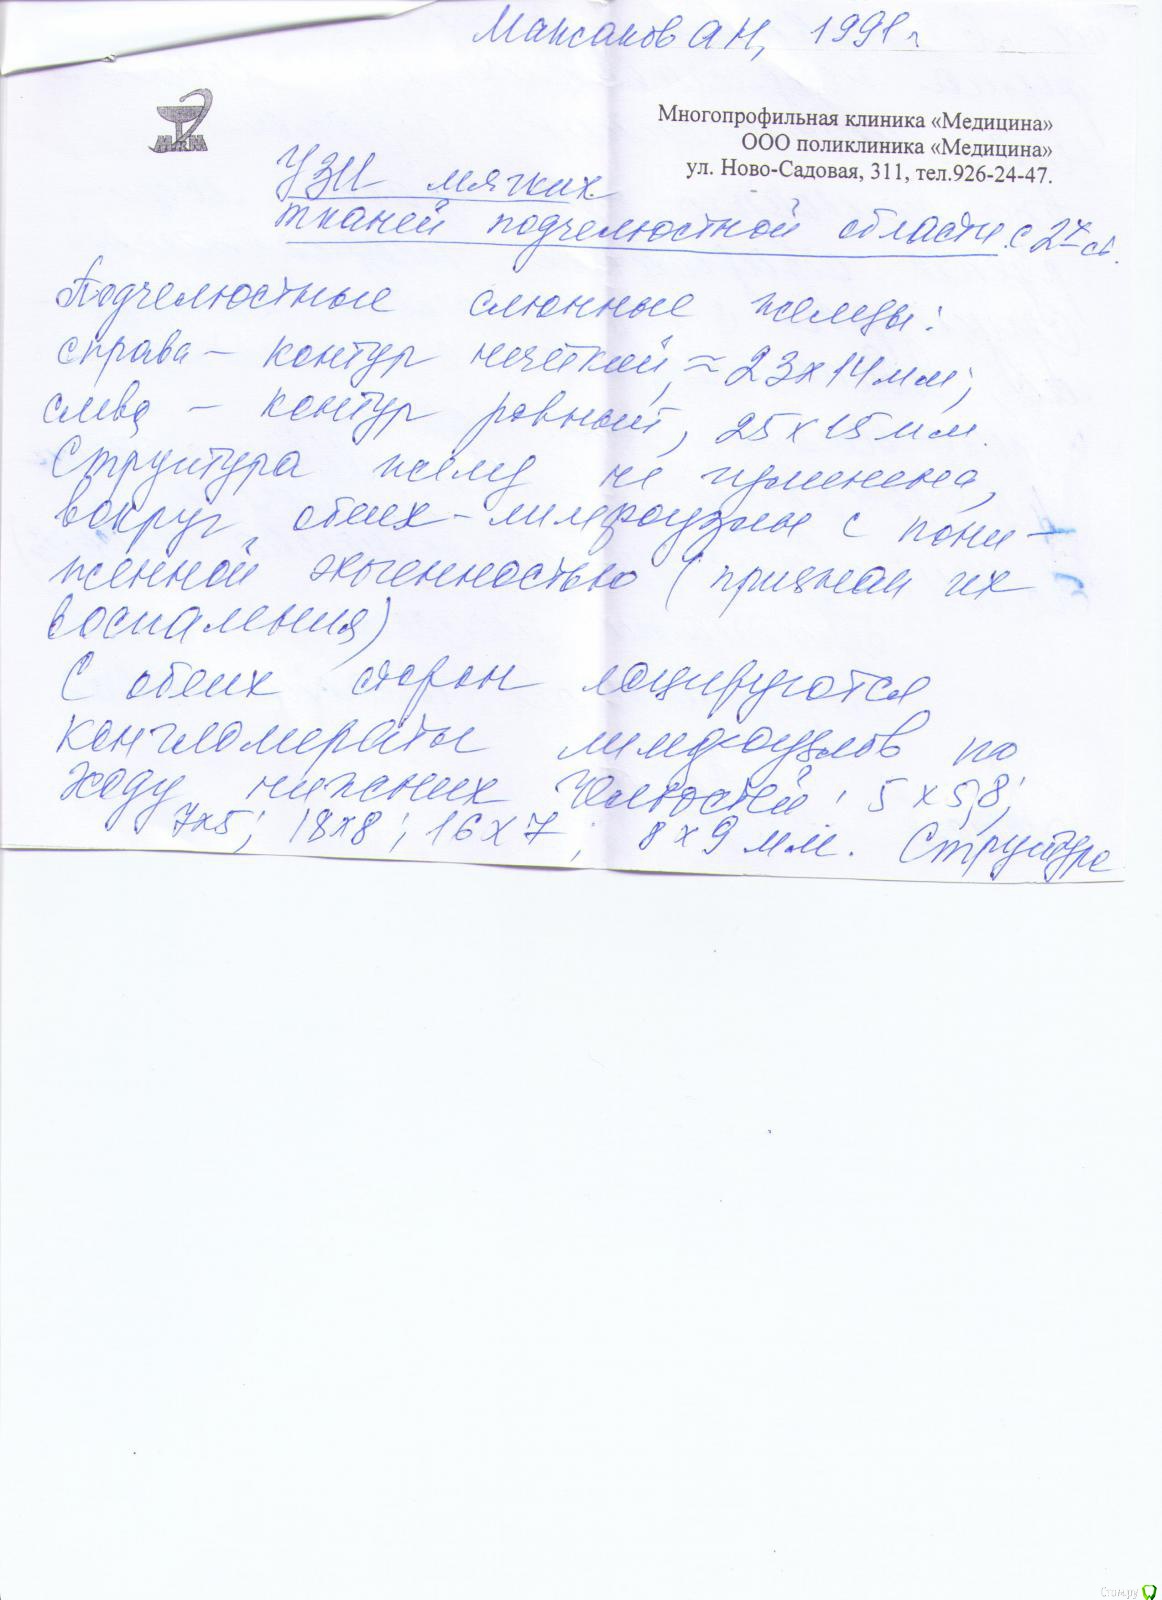 Максаков АН, 1991г
МКМ
Многопрофильная клиника «Медицина»
ООО поликлиника «Медицина»
ул. Ново-Садовая, 311, тел.926-24-47.
УЗИ мягких
тканей подчелюстной области с 2х ст.
Подчелюстные слюнные железы:
справа – контур нечёткий, ≈ 23х14мм;
слева – контур ровный, 25х15мм.
Структура желез не изменена,
вокруг обеих – лимфоузлы с пони-
женной эхогенностью (признаки их
воспаления)
С обеих сторон лоцируются
конгломераты лимфоузлов по
ходу нижних челюстей: 5х5,8;
7х5; 18х8; 16х7; 8х9мм. Структура
Стом.ру